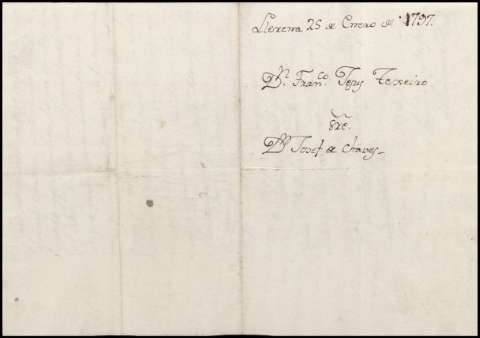 Llerena 25 de Enero de 1797.
Dn. Franco. Texeiro
Dn. Josef de Chaves